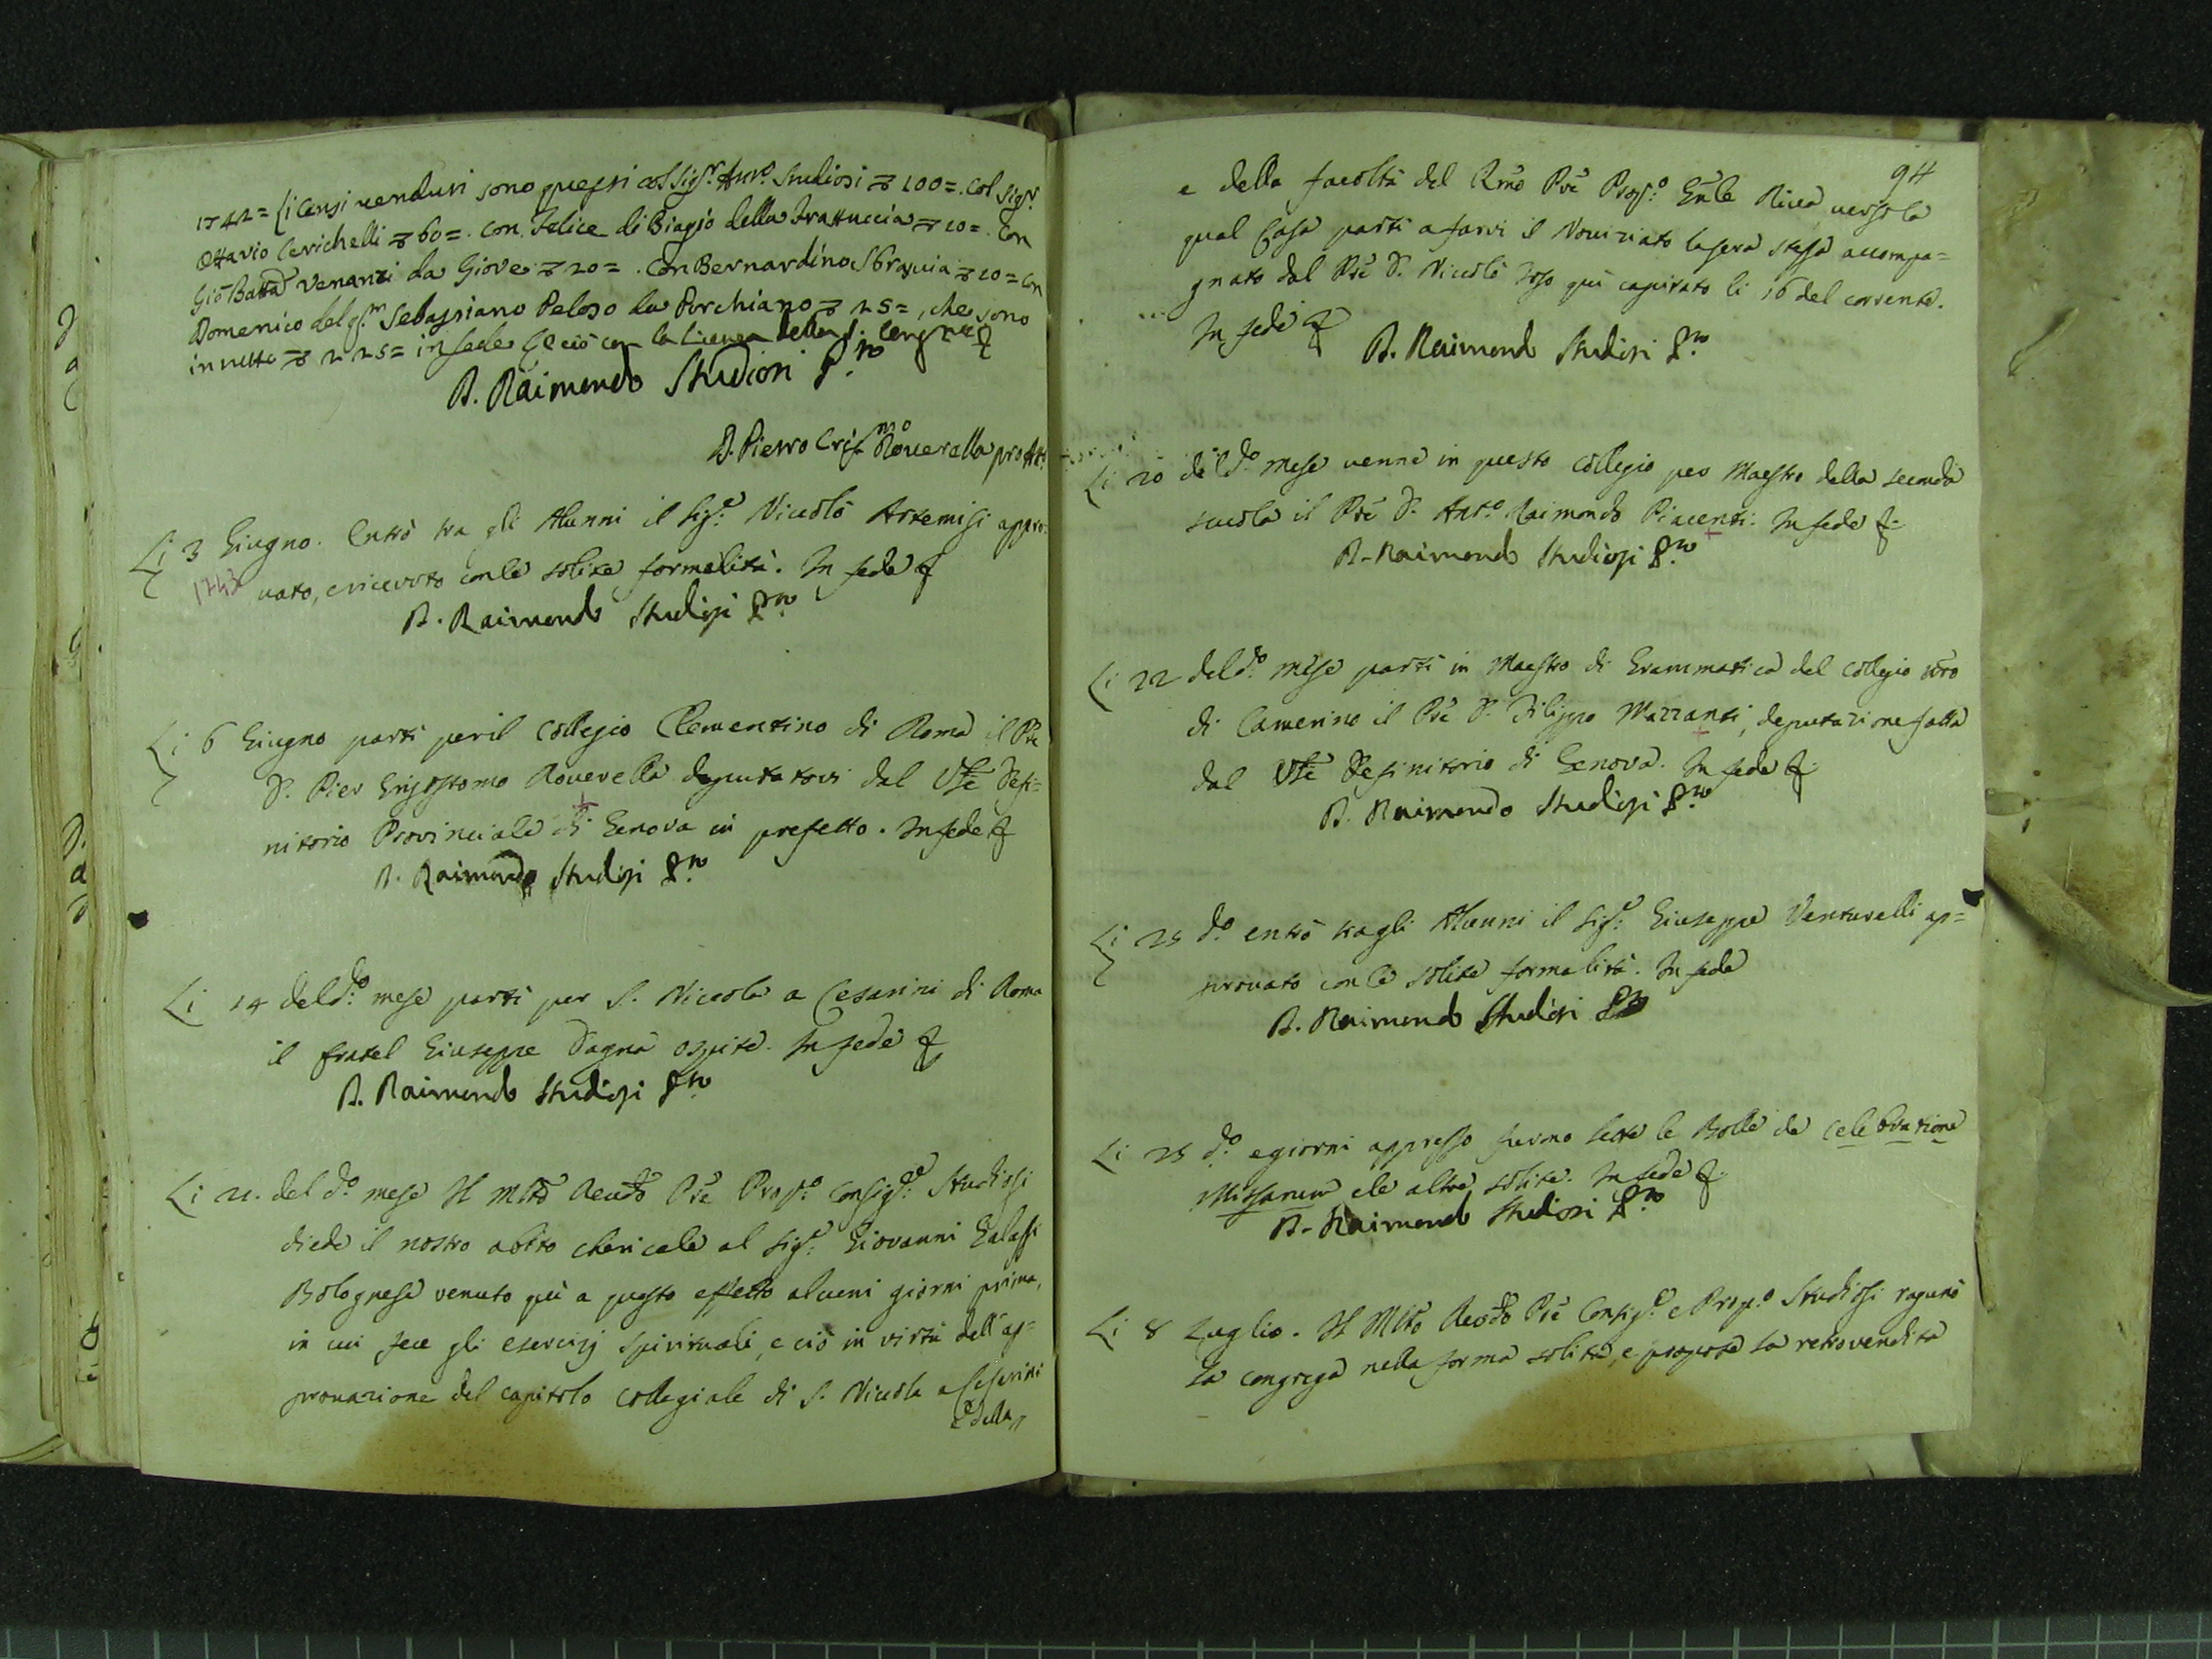 1742 = Li Censi venduti sono questi col Sig.r Ant.o Studiosi ꝫ 100 = . Col Sig.r
Ottavio Cerichelli ꝫ 60 = . Con Felice di Biagio della Frattuccia ꝫ 10 = . Con
Gio Batta Venanzi da Giove ꝫ 20 = . Con Bernardino Sbraccia ꝫ 10 = Con
Domenico del q.m Sebastiano Peloso da Porchiano ꝫ 25 = , che sono
in tutto ꝫ 225 = in fede e ciò con la licenza della S. Cong.ne
D. Raimondo Studiosi P.to
D. Pietro Cris.mo Roverella pro Att.
Li 3 Giugno. Entrò tra gli Alunni il Sig.e Niccolò Artemisi appro-
1743 vato, e ricevuto con le solite formalità. In fede
D. Raimondo Studiosi P.to
Li 6 Giugno partì per il Collegio Clementino di Roma il Pre
D. Pier Grisostomo Roverella deputatovi dal Vbe Defi=
nitorio Provinciale di Genova in prefetto. In fede
D. Raimondo Studiosi P.to
Li 14 del d.o mese partì per S. Niccola a Cesarini di Roma
il fratel Giuseppe Sagna ospite. In fede
D. Raimondo Studiosi P.to
Li 21. del d.o mese Il Mto Revdo Pre Prop.o Consig.re Studiosi
diede il nostro abito chericale al Sig.e Giovanni Galassi
Bolognese venuto quì a questo effetto alcuni giorni prima,
in cui fece gli esercizj spirituali, e ciò in virtù dell' ap=
provazione del capitolo Collegiale di S. Nicola a Cesarini
e della
94
e della facoltà del Rmo Pre Prop.o Gnle Riva verso la
qual Casa partì a farvi il Noviziato la sera stessa accompa=
gnato dal Pre D. Niccolò Toso quì capitato li 16 del corrente.
In fede
D. Raimondo Studiosi P.to
Li 20 del d.o mese venne in questo Collegio per Maestro della seconda
scuola il Pre D. Ant.o Raimondo Piacenti. In fede
D. Raimondo Studiosi P.to
Li 22 del d.o mese partì in Maestro di Grammatica del Collegio nro
di Camerino il Pre D. Filippo Mazzanti, deputazione fatta
dal Vbe Definitorio di Genova. In fede
D. Raimondo Studiosi P.to
Li 25 d.o entrò tra gli Alunni il Sig.e Giuseppe Venturelli ap=
provato con le solite formalità. In fede
D. Raimondo Studiosi P.to
Li 25 d.o e giorni appresso furno lette le Bolle de Celebratione
Missarum e le altre solite. In fede
D. Raimondo Studiosi P.to
Li 8 Luglio. Il Mto Revdo Pre Consig.e e Prop.o Studiosi ragunò
la congrega nella forma solita, e propose la retrovendita